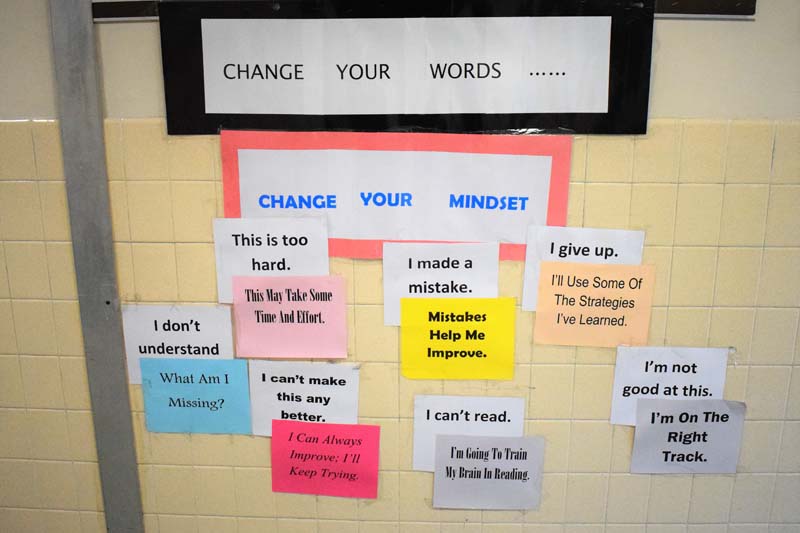 CHANGE YOUR WORDS ......
CHANGE YOUR MINDSET
This is too
hard.
This May Take Some
Time And Effort.
I made a
mistake.
Mistakes
Help Me
Improve.
I give up.
I'll Use Some Of
The Strategies
I've Learned.
I don't
understand
What Am I
Missing?
I can't make
this any
better.
I Can Always
Improve; I'll
Keep Trying.
I can't read.
I'm Going To Train
My Brain In Reading.
I'm not
good at this.
I'm On The
Right
Track.